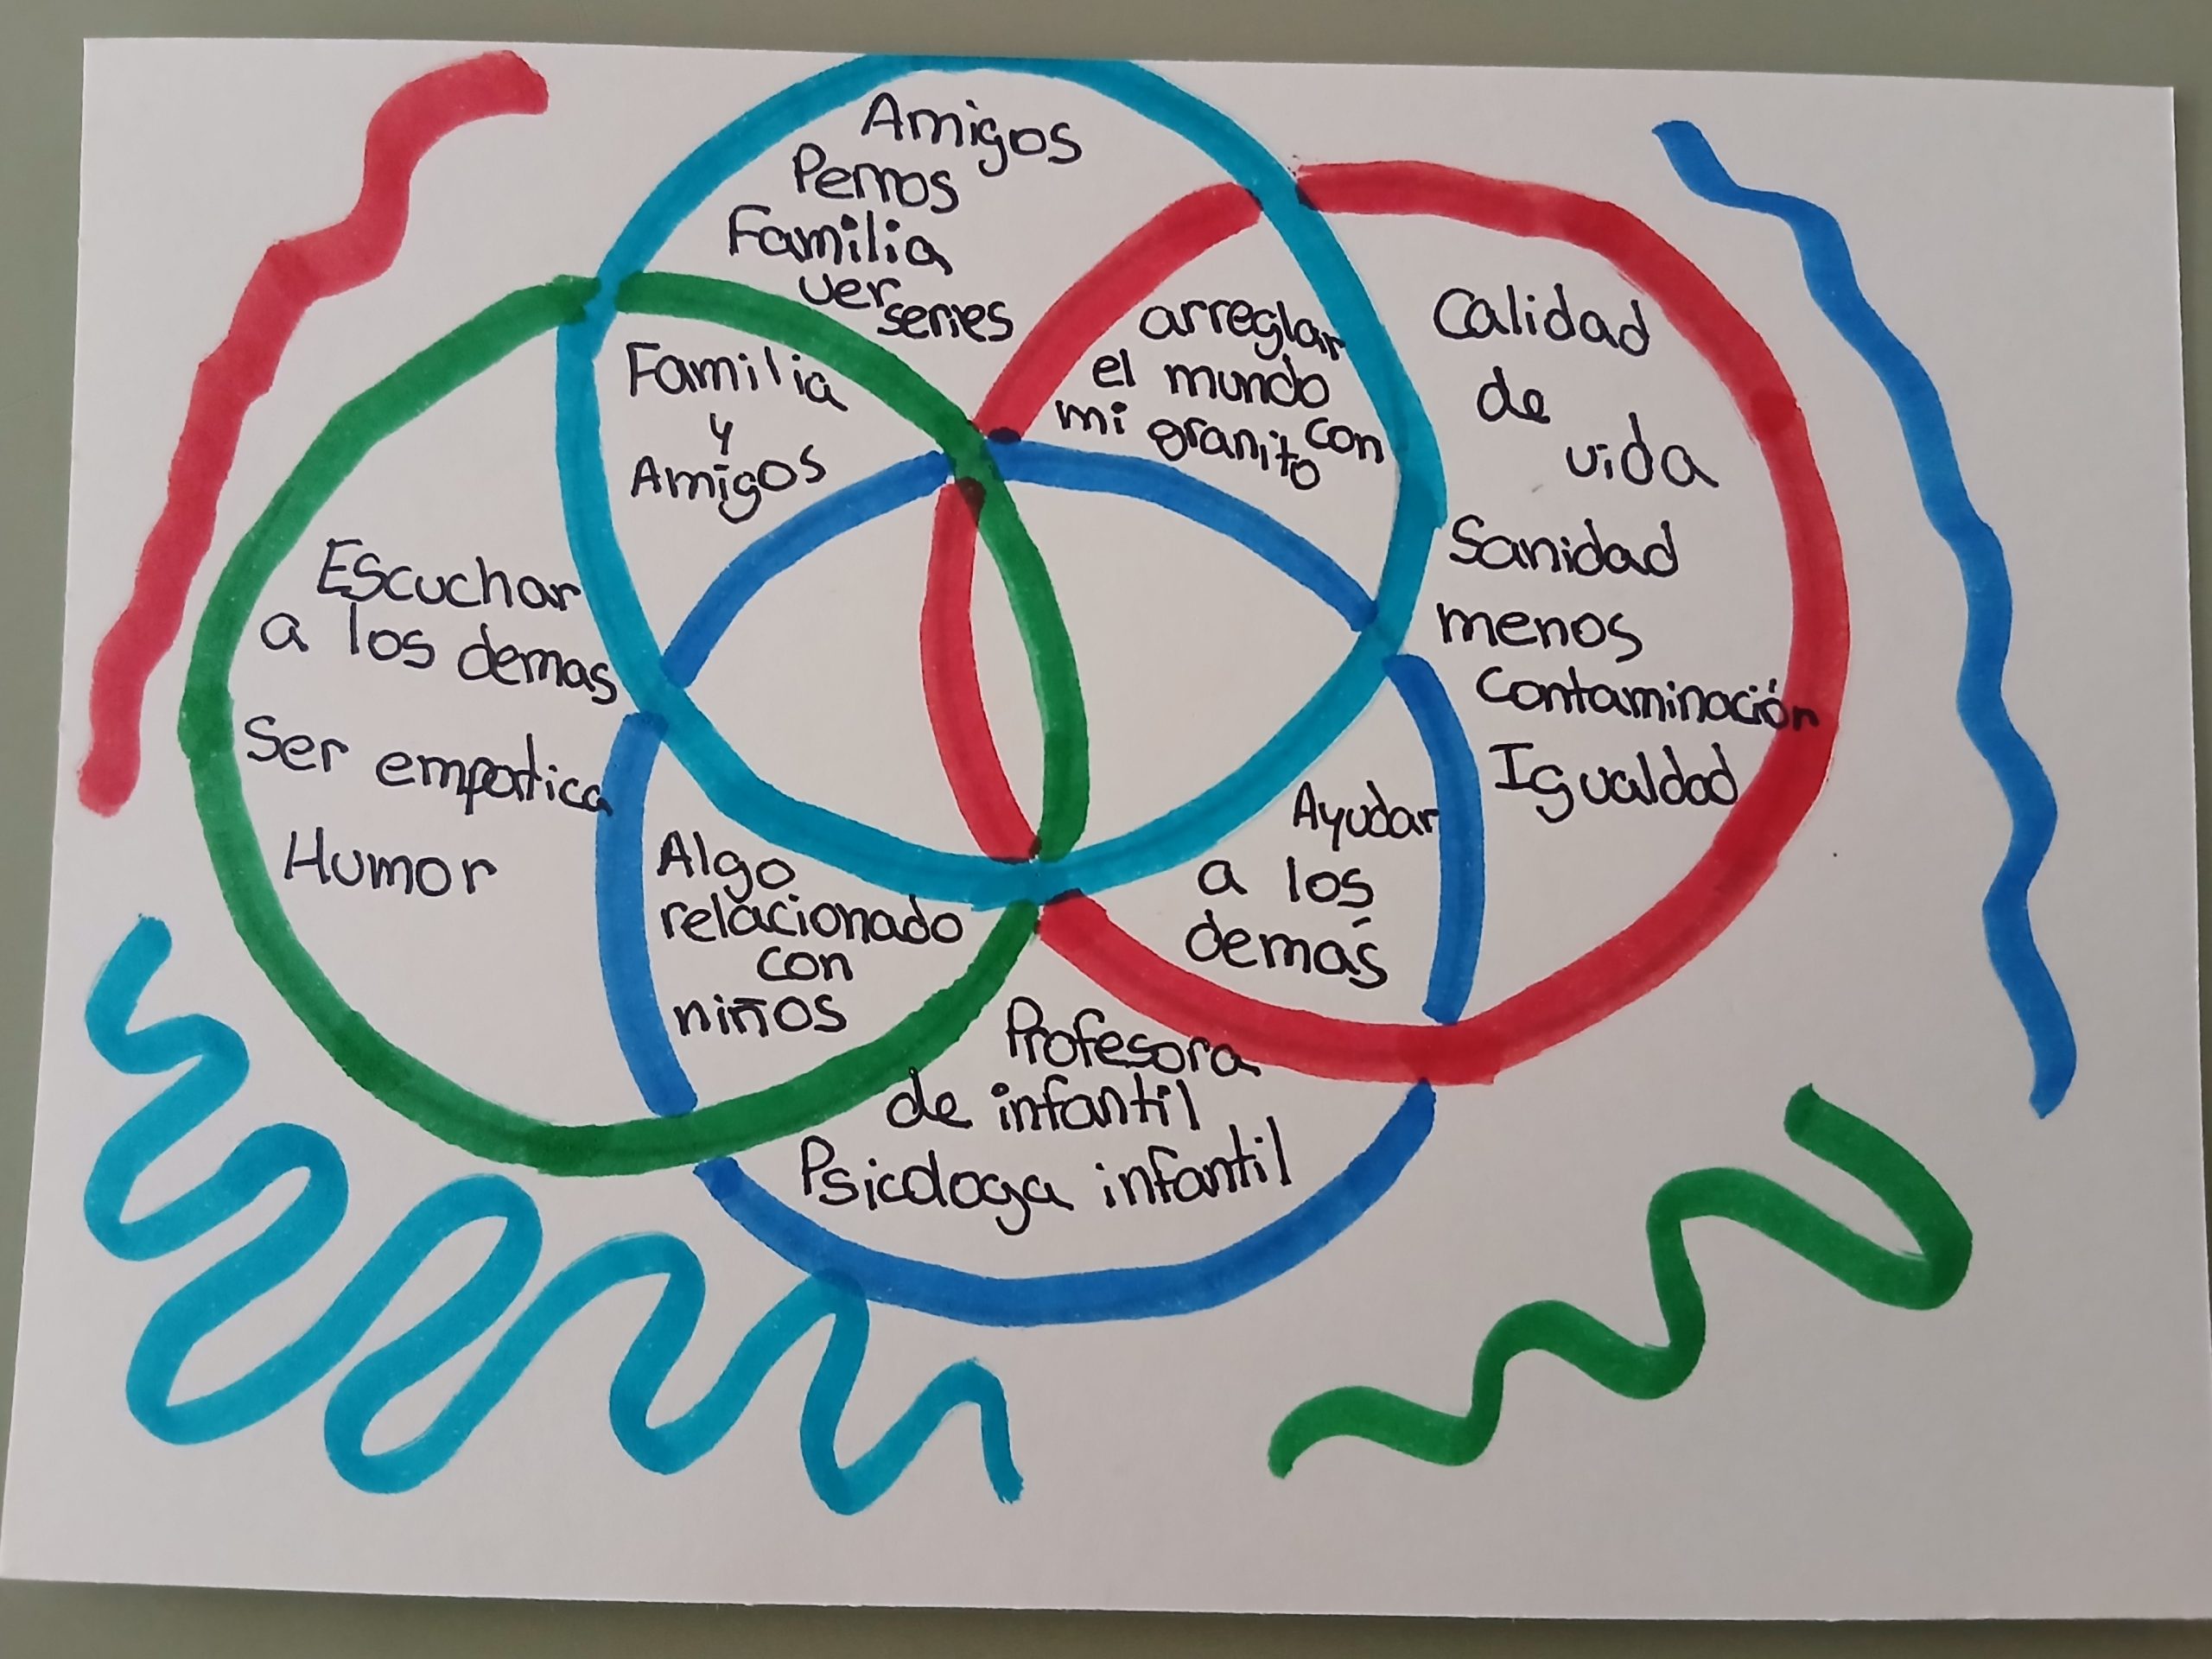 Amigos
Perros
Familia
ver
series
Familia
y
Amigos
arreglar
el mundo
mi granito con
Calidad
de
vida
Sanidad
menos
Contaminación
Igualdad
Escuchar
a los demas
Ser empatica
Humor
Algo
relacionado
con
niños
Ayudar
a los
demás
Profesora
de infantil
Psicologa infantil